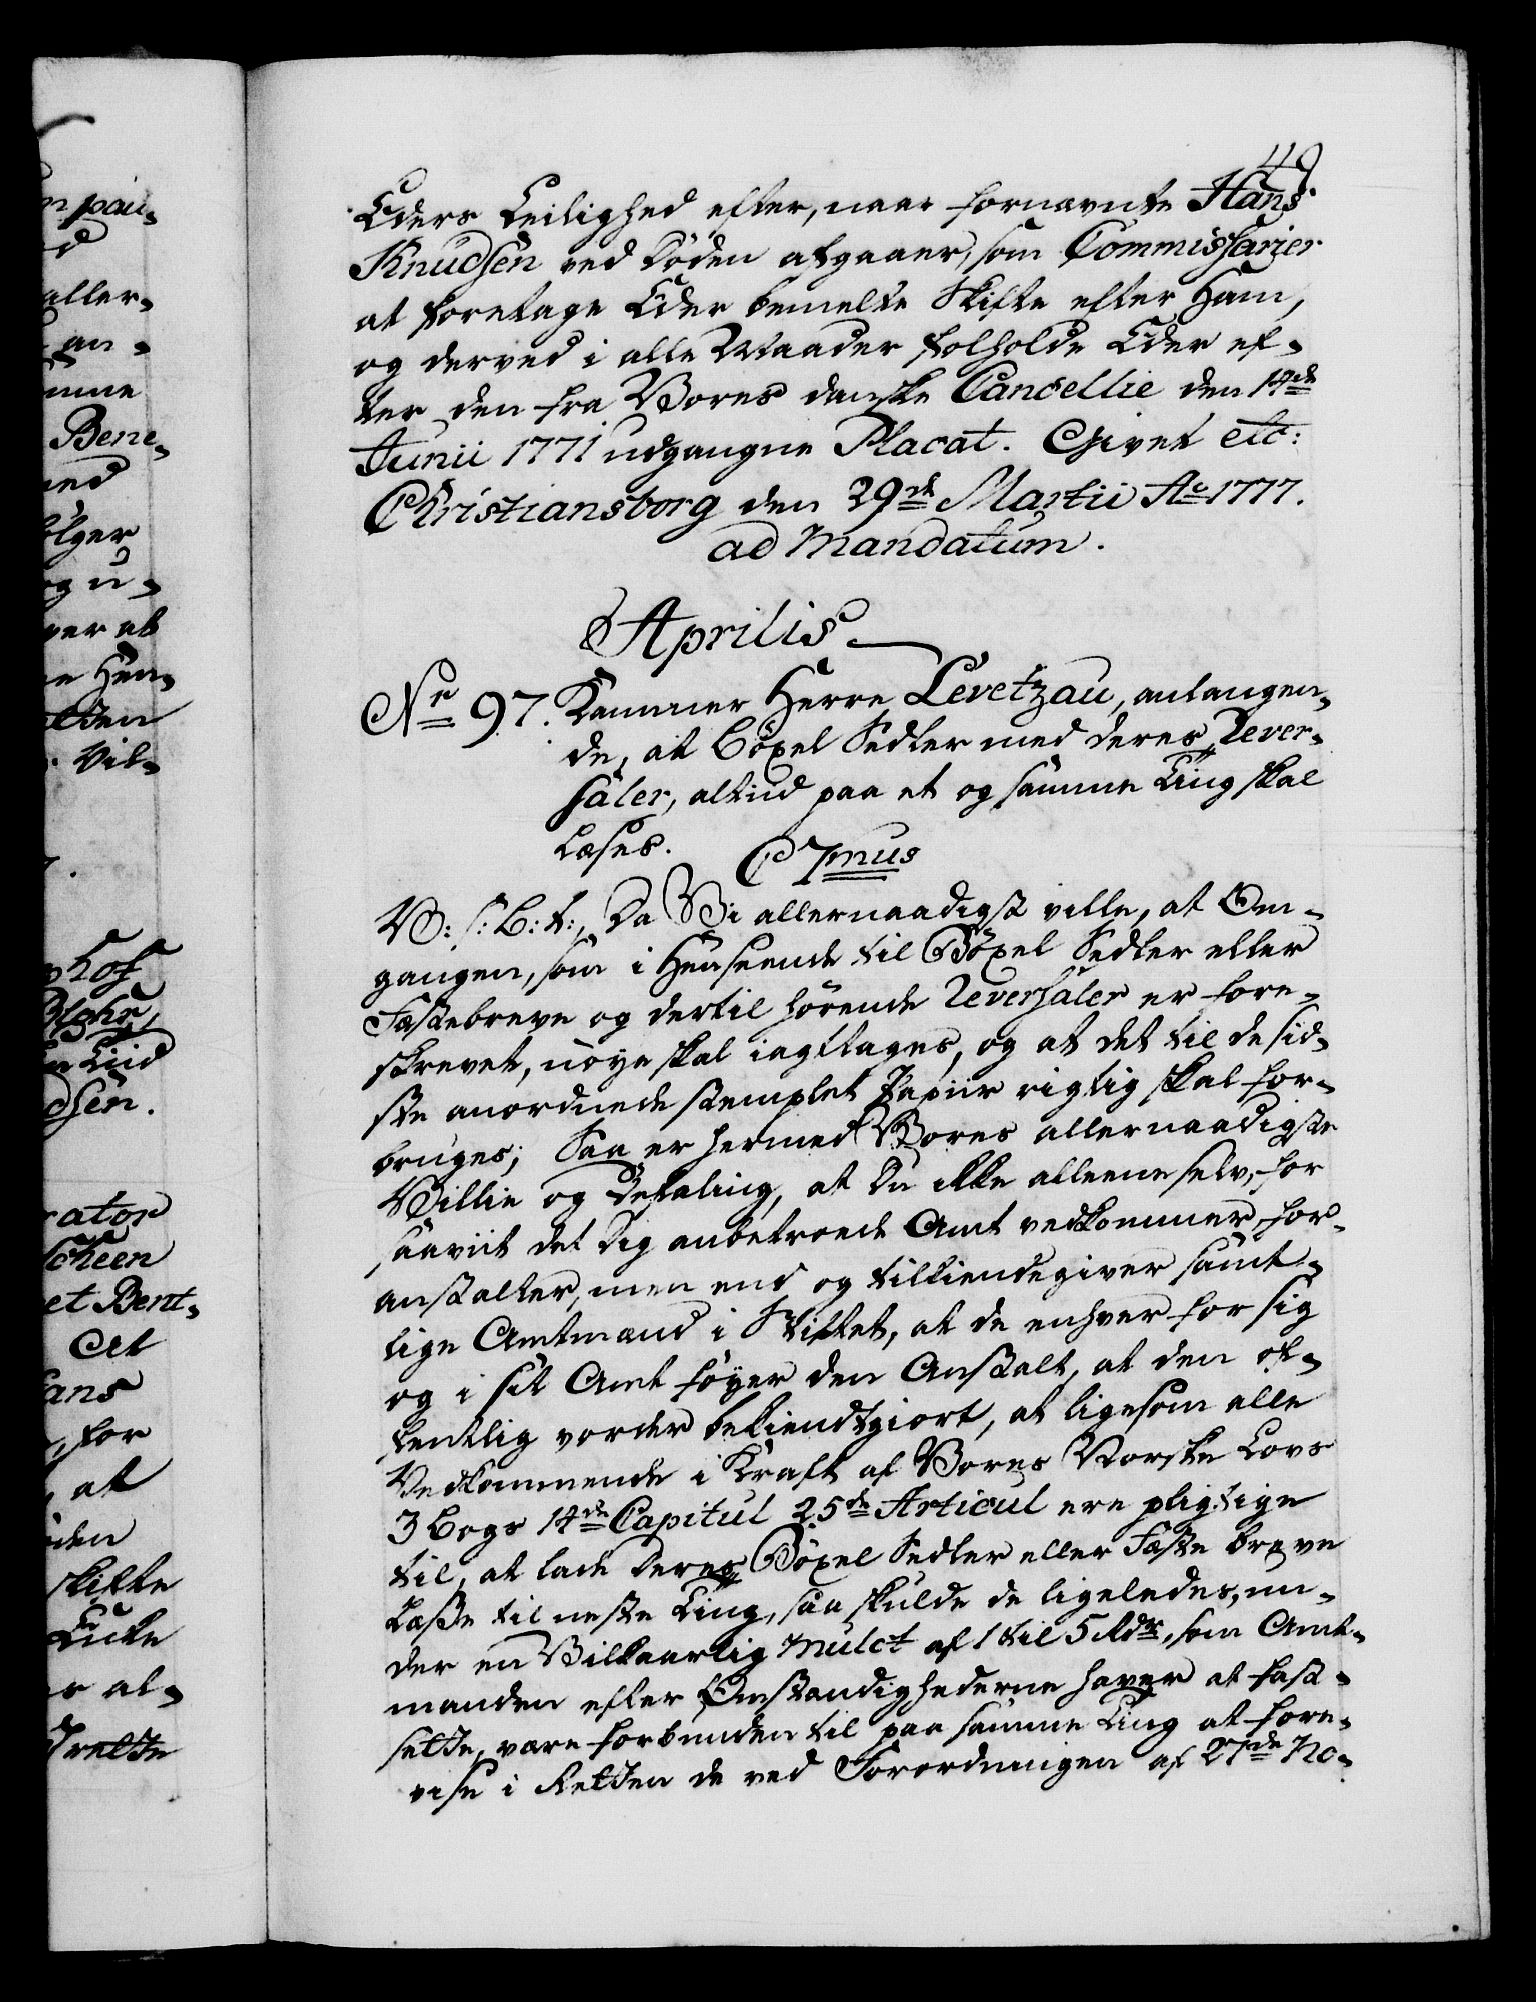 49.
Eders Leilighed efter, naar fornævnte Hans
Knudsen ved Döden afgaaer, som Commissarier
at foretage Eder bemelte Skifte efter Ham,
og derved i alle Maader forholde Eder ef-
ter den fra Vores danske Cancellie den 14de
Junii 1771 udgangne Placat. Givet etc:
Christiansborg den 29de Martii Ao 1777.
ad Mandatum.
Aprilis
No 97. Kammer Herre Levetzau, anlangen-
de, at Böxel Sedler med deres Rever-
saler, altiid paa et og samme Ting skal
læses.
C 7mus
V: S: B: t:, Da Vi allernaadigst ville, at Om-
gangen, som i Henseende til Böxel Sedler eller
Fæstebreve og dertil hörende Reversaler er fore-
skrevet, nöye skal iagttages, og at det til de sid-
ste anordnede stemplet Papiir rigtig skal for-
bruges; Saa er hermed Vores allernaadigste
Villie og Befaling, at Du ikke alleene selv, for
saaviit det Dig anbetroede Amt vedkommer, for-
anstalter, men end og tilkiendegiver samt-
lige Amtmænd i Stiftet, at de enhver for sig
og i sit Amt föyer den Anstalt, at den of-
fentlig vorder bekiendtgiort, at ligesom alle
Vedkommende i Kraft af Vores Norske Lovs
3 Bogs 14de Capitul 25de Articul ere pligtige
til, at lade deres Böxel Sedler eller Fæste breve
læse til neste Ting, saa skulde de ligeledes, un-
der en Vilkaarlig Mulct af 1 til 5 Rdr, som Amt-
manden efter Omstændighederne haver at fast-
sette, være forbunden til paa samme Ting at fore-
vise i Retten de ved Forordningen af 27de No-